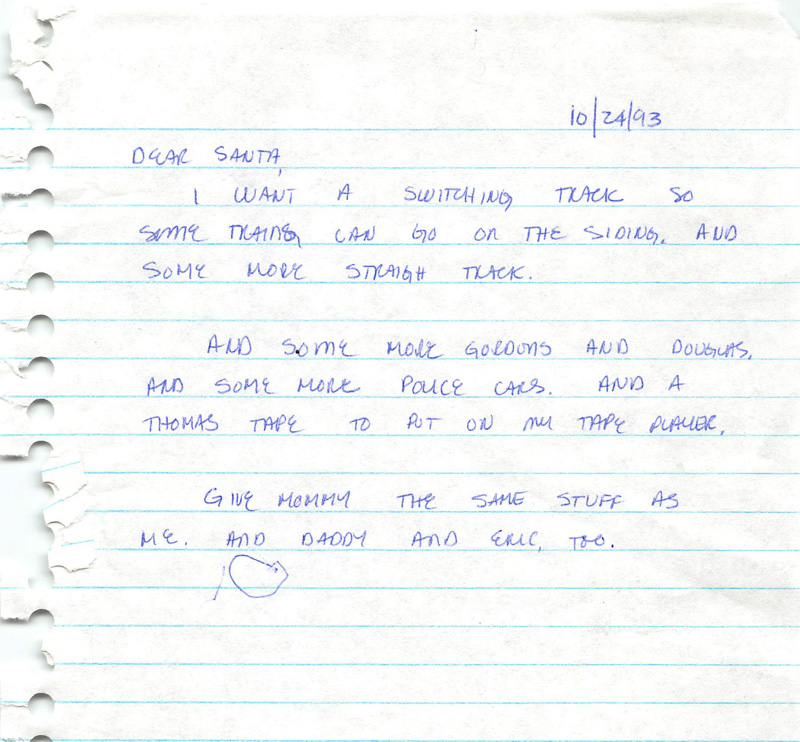 10/24/93
DEAR SANTA,
I WANT A SWITCHING TRACK SO
SOME TRAINS CAN GO ON THE SIDING. AND
SOME MORE STRAIGH TRACK.
AND SOME MORE GORDONS AND DOUGLAS.
AND SOME MORE POLICE CARS. AND A
THOMAS TAPE TO PUT ON MY TAPE PLAYER.
GIVE MOMMY THE SAME STUFF AS
ME. AND DADDY AND ERIC, TOO.